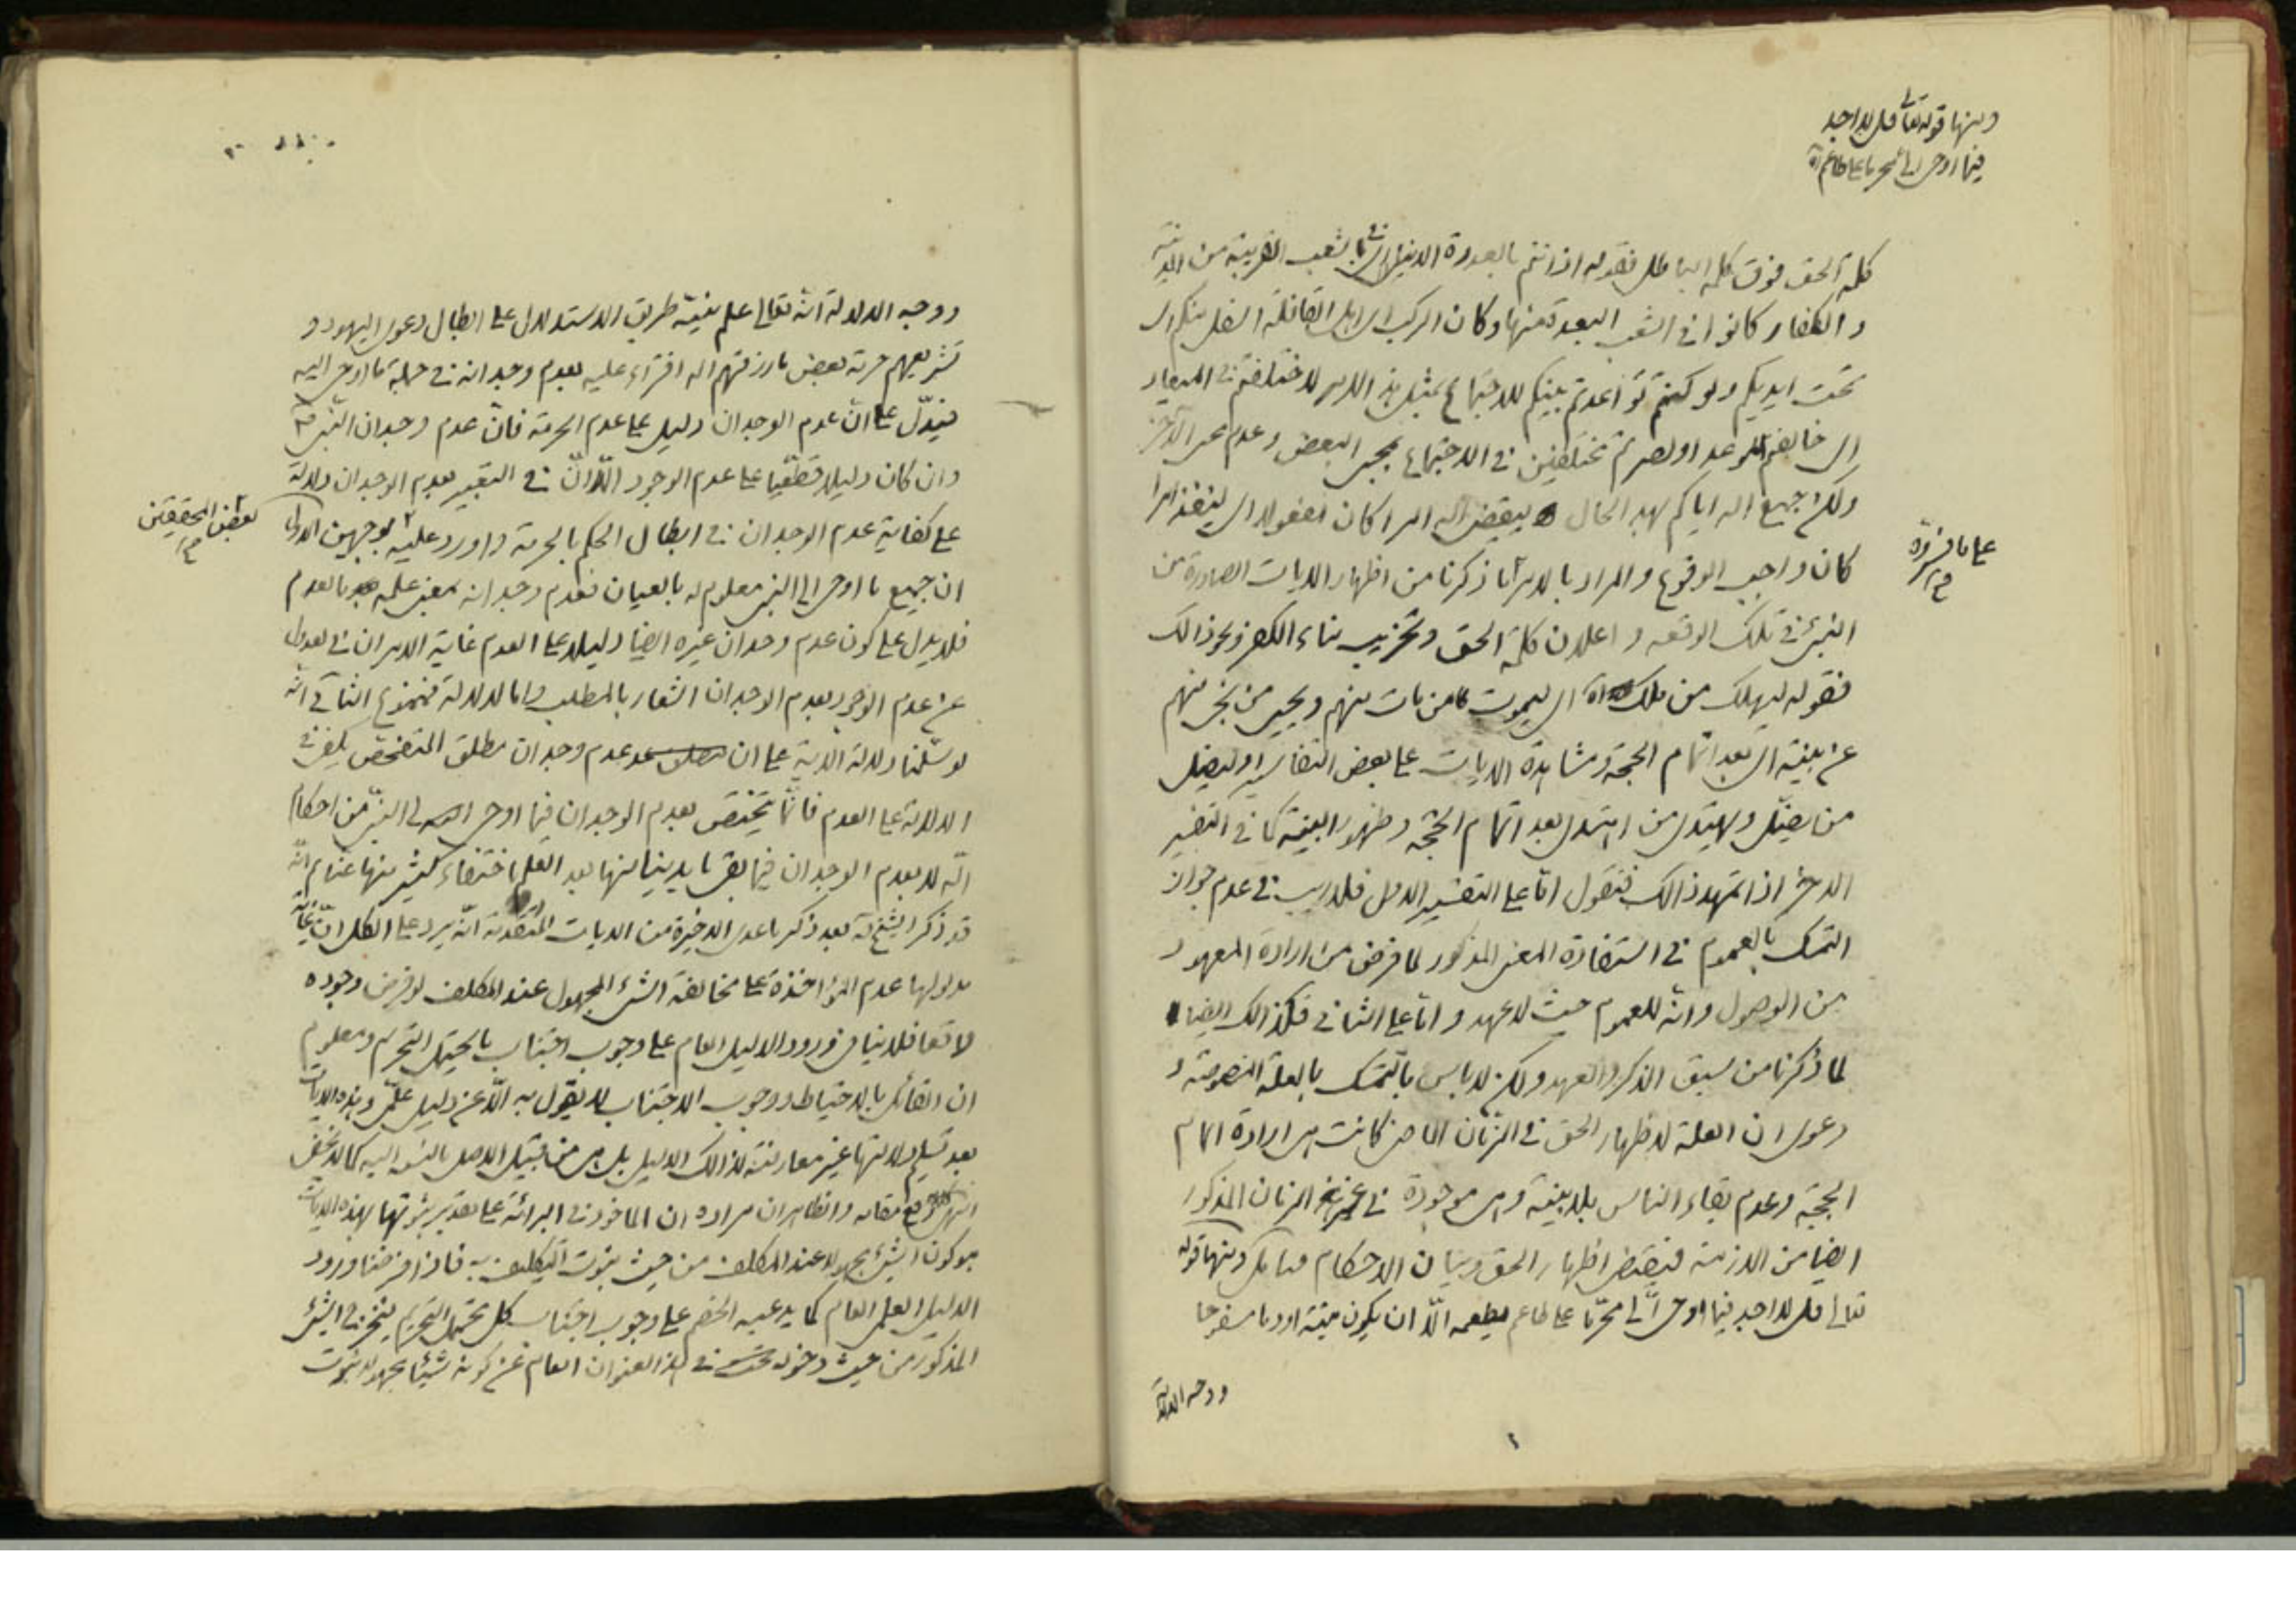 ومنها قوله تعالى قل لا اجد
فيما اوحى الى محرما على طاعم اه
كلمة الحق فوق كلمة الباطل فقوله اذ انتم بالعدوة الدنيا اى فى الشعب القريبة من المدينة
و الكفار كانوا فى الشعب البعيدة منها وكان الركب اى اهل القافلة اسفل منكم اى
تحت ايديكم ولو كنتم تواعدتم بينكم للاجتماع بمثل هذا الامر لاختلفتم فى الميعاد
اى خالفتم الموعد او لصرتم مختلفين فى الاجتماع بمجىء البعض وعدم مجىء الآخر
ولكن جميع الله اياكم بهذا الحال ليقضى الله امرا كان مفعولا اى لينفذ امرا
على ما فسروه
كان واجب الوقوع والمراد بالامر ما ذكرنا من اظهار الايات الصادرة من
النبى فى تلك الوقعه و اعلان كلمة الحق وتخريب بناء الكفر ونحو ذالك
فقوله ليهلك من هلك اه اى ليموت من مات منهم ويحيى من نجى منهم
عن بينة اى بعد اتمام الحجة ومشاهدة الايات على بعض التفاسير او ليضل
من يضل ويهتدى من اهتدى بعد اتمام الحجة وظهور البينة كما فى التفسير
الاخر اذا تمهد ذالك فنقول اما على التفسير الاول فلا ريب فى عدم جواز
التمسك بالعموم فى استفادة المعنى المذكور لما فرض من ارادة المعهود
من الوصول وانه للعموم حيث لا عهد واما على الثانى فكذالك ايضا
لما ذكرنا من سبق الذكر والعهد ولكن لا باس بالتمسك بالعلة المنصوصة و
دعوى ان العلة لاظهار الحق فى الزمان الماضى كانت هى ارادة اتمام
الحجة وعدم بقاء الناس بلا بينة وهى موجودة فى غير الزمان المذكور
ايضا من الازمنة فيقتضى اظهار الحق وبيان الاحكام ومنها قوله
تعالى قل لا اجد فيما اوحى الى محرما على طاعم يطعمه الا ان يكون ميتة او دما مسفوحا
ووجه الدلالة
ووجه الدلالة انه تعالى علم نبيه طريق الاستدلال على ابطال دعوى اليهود و
تشريعهم حرمة بعض ما رزقهم الله افتراء عليه بعدم وجدانه فى جملة ما اوحى اليه
فيدل على ان عدم الوجدان دليل على عدم الحرمة فان عدم وجدان النبى ص
وان كان دليلا قطعيا على عدم الوجود الا ان فى التعبير بعدم الوجدان دلالة
على كفاية عدم الوجدان فى ابطال الحكم بالحرمة واورد عليه بوجهين الاول
بعض المحققين
ان جميع ما اوحى الى النبى معلوم له بالعيان فعدم وجدانه معنى علمه بالعدم
فلا يدل على كون عدم وجدان غيره ايضا دليلا على العدم غاية الامر ان فى العدول
عن عدم الوجود بعدم الوجدان اشعار بالمطلب واما الدلالة فممنوع الثانى انه
لو سلمنا دلالة الاية على ان عدم وجدان مطلق المتفحص يكفى فى
الدلالة على العدم فانما يختص بعدم الوجدان فيما اوحى الله الى النبى من احكام
الله لا بعدم الوجدان فيما بقى بايدينا منها بعد العلم باختفاء كثير منها عنا ثم انه
قد ذكر الشيخ ره بعد ذكر ما عدى الاخيرة من الايات المتقدمة انه يرد على الكل ان غاية
مدلولها عدم المؤاخذة على مخالفة الشىء المجهول عند المكلف لو فرض وجوده
واقعا فلا ينافى ورود الدليل العام على وجوب اجتناب ما يحتمل التحريم ومعلوم
ان القائل بالاحتياط ووجوب الاجتناب لا يقول به الا عن دليل علمى وهذه الايات
بعد تسليم دلالتها غير معارضة لذالك الدليل بل هى من قبيل الاصل بالنسبة اليه كما لا يخفى
انتهى مقامه والظاهر ان مراده ان الماخوذ فى البرائة على تقدير ثبوتها بهذه الايات
هو كون الشىء مجهولا عند المكلف من حيث ثبوت التكليف به فاذا فرضنا ورود
الدليل العلمى العام كما يدعيه الخصم على وجوب اجتناب كل محتمل التحريم يخرج الشىء
المذكور من حيث دخوله تحت هذا العنوان العام عن كونه شيئا مجهولا ثبوت